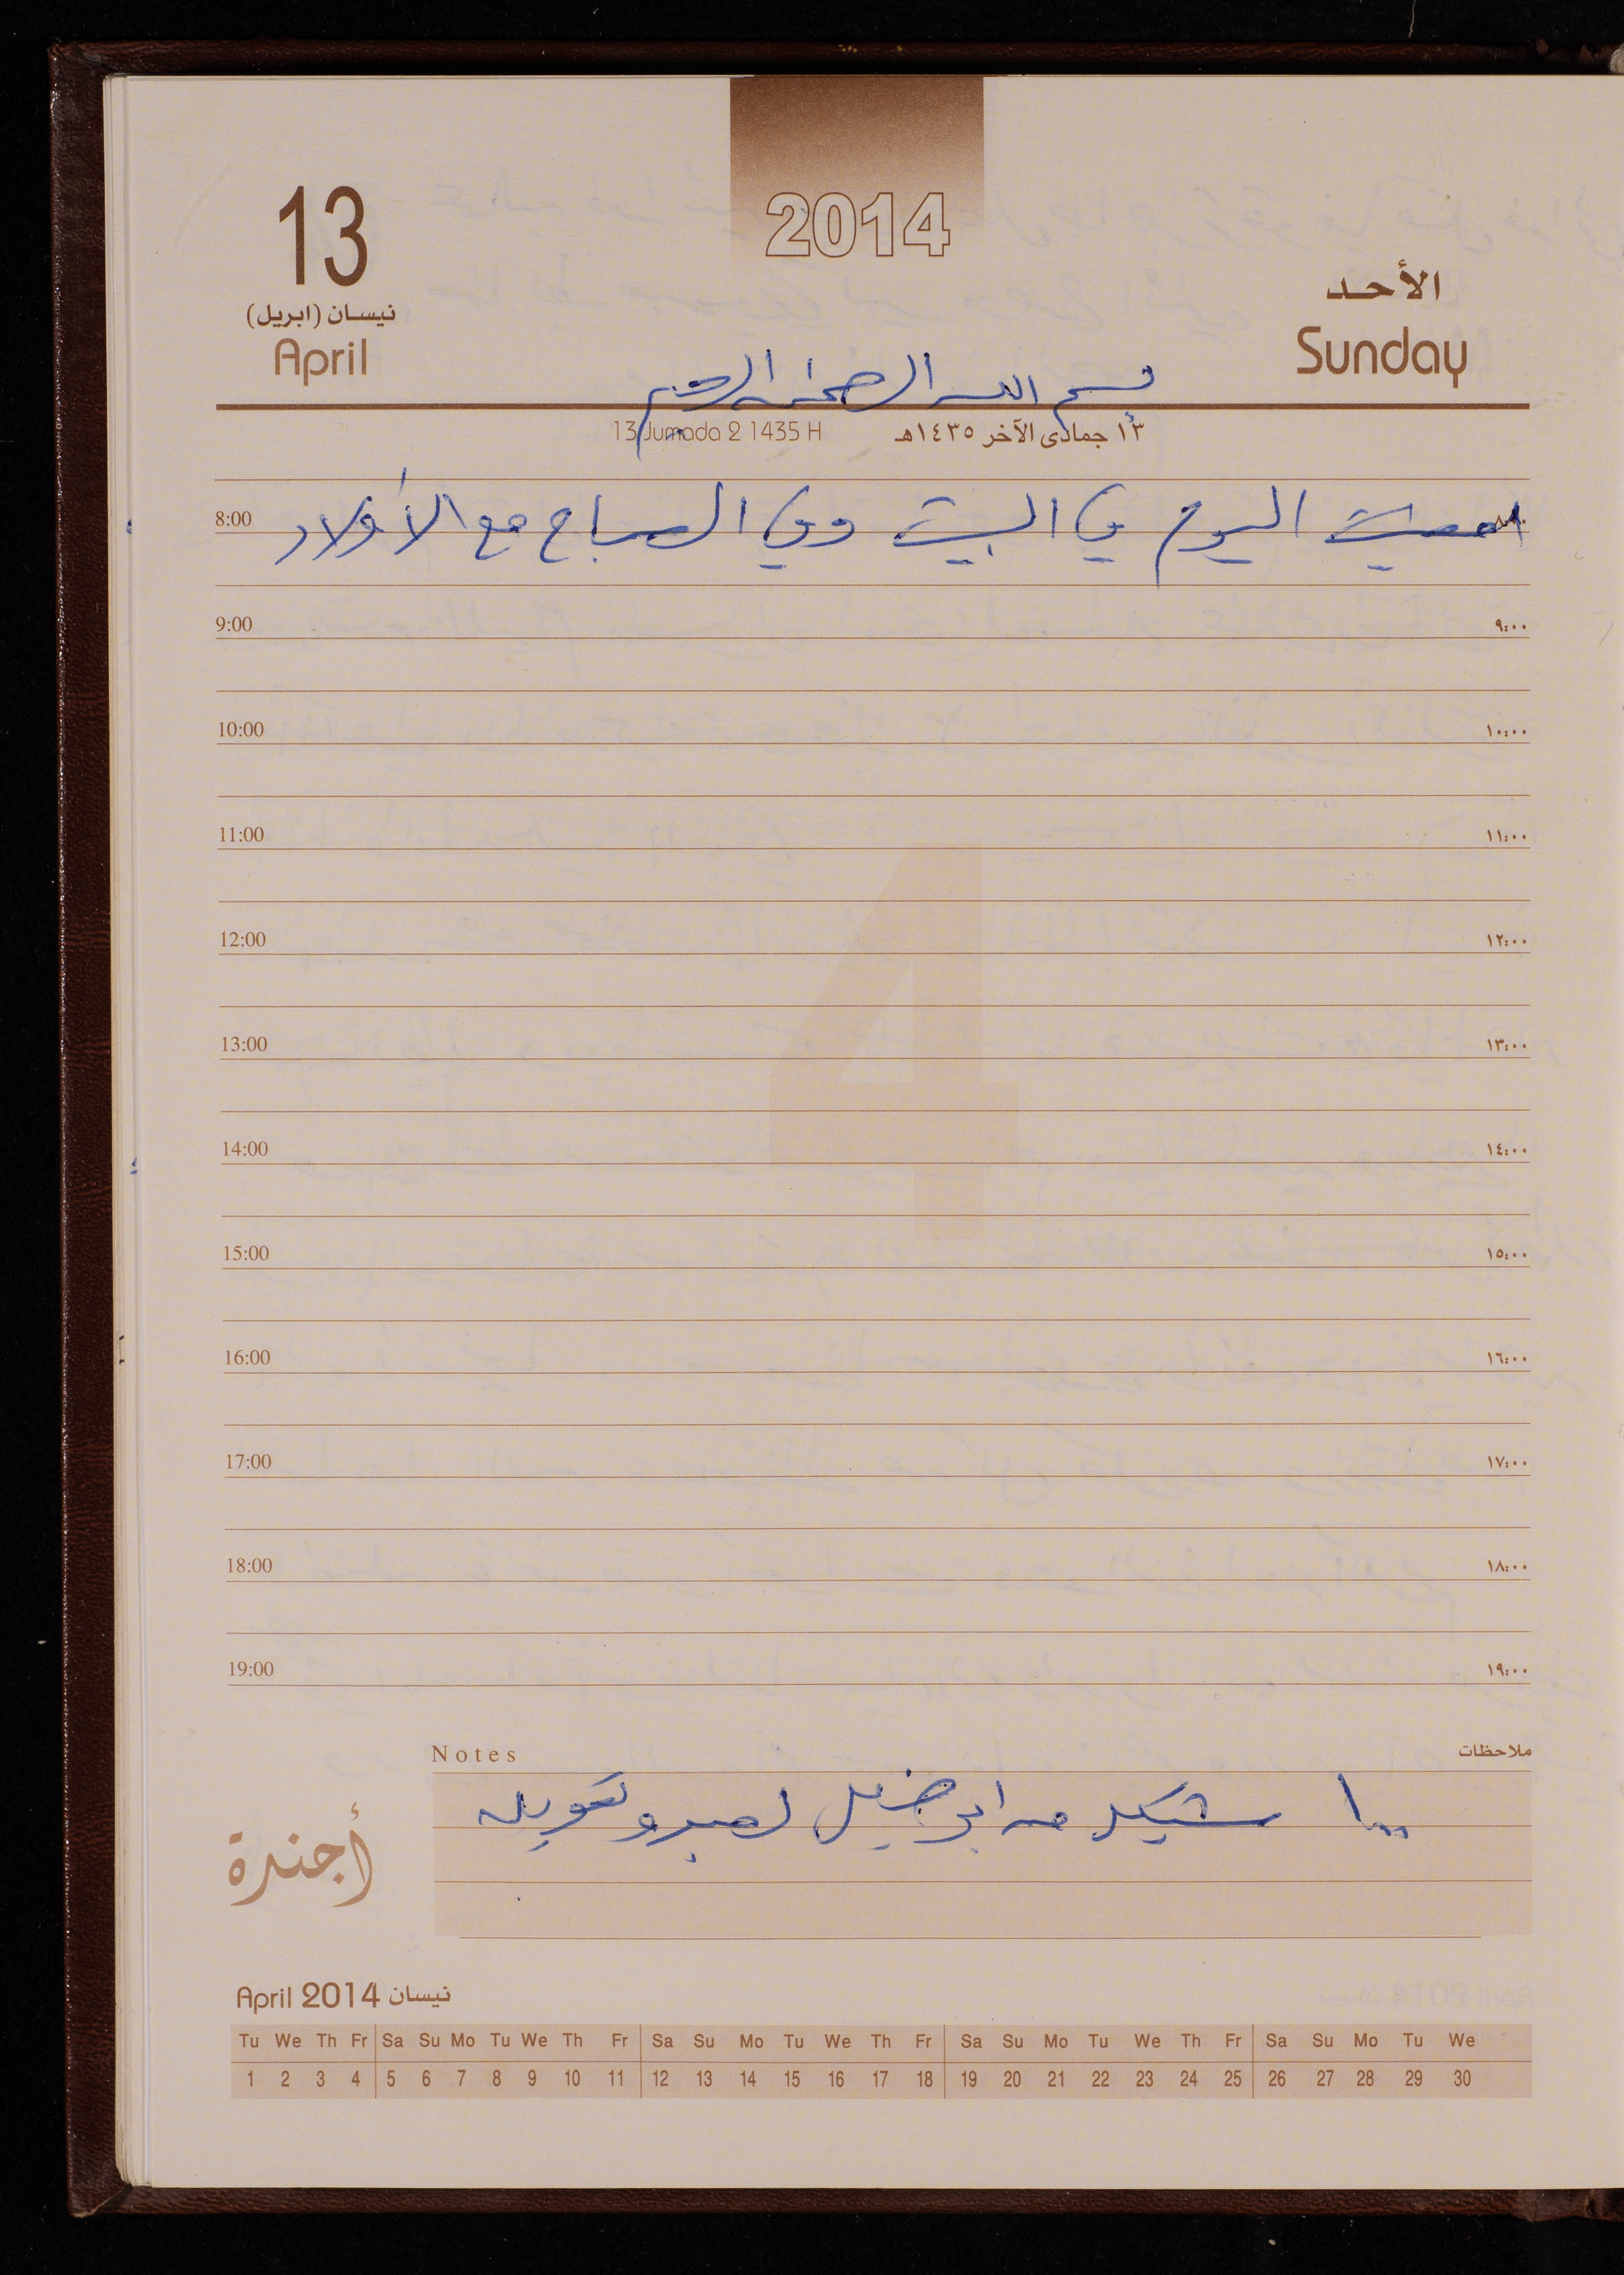 2014
13
نيسان (ابريل)
April
الأحد
Sunday
بسم الله الرحمن الرحيم
13 Jumada 2 1435 H ١٣ جمادى الآخر ١٤٣٥هـ
8:00 امضيت اليوم في البيت وفي الصباح مع الأولاد
9:00 ٩:٠٠
10:00 ١٠:٠٠
11:00 ١١:٠٠
12:00 ١٢:٠٠
4
13:00 ١٣:٠٠
14:00 ١٤:٠٠
15:00 ١٥:٠٠
16:00 ١٦:٠٠
17:00 ١٧:٠٠
18:00 ١٨:٠٠
19:00 ١٩:٠٠
Notes ملاحظات
١٠٠٠ شيكل من ابو
أجندة
April 2014 نيسان
Tu We Th Fr Sa Su Mo Tu We Th Fr Sa Su Mo Tu We Th Fr Sa Su Mo Tu We Th Fr Sa Su Mo Tu We
1 2 3 4 5 6 7 8 9 10 11 12 13 14 15 16 17 18 19 20 21 22 23 24 25 26 27 28 29 30